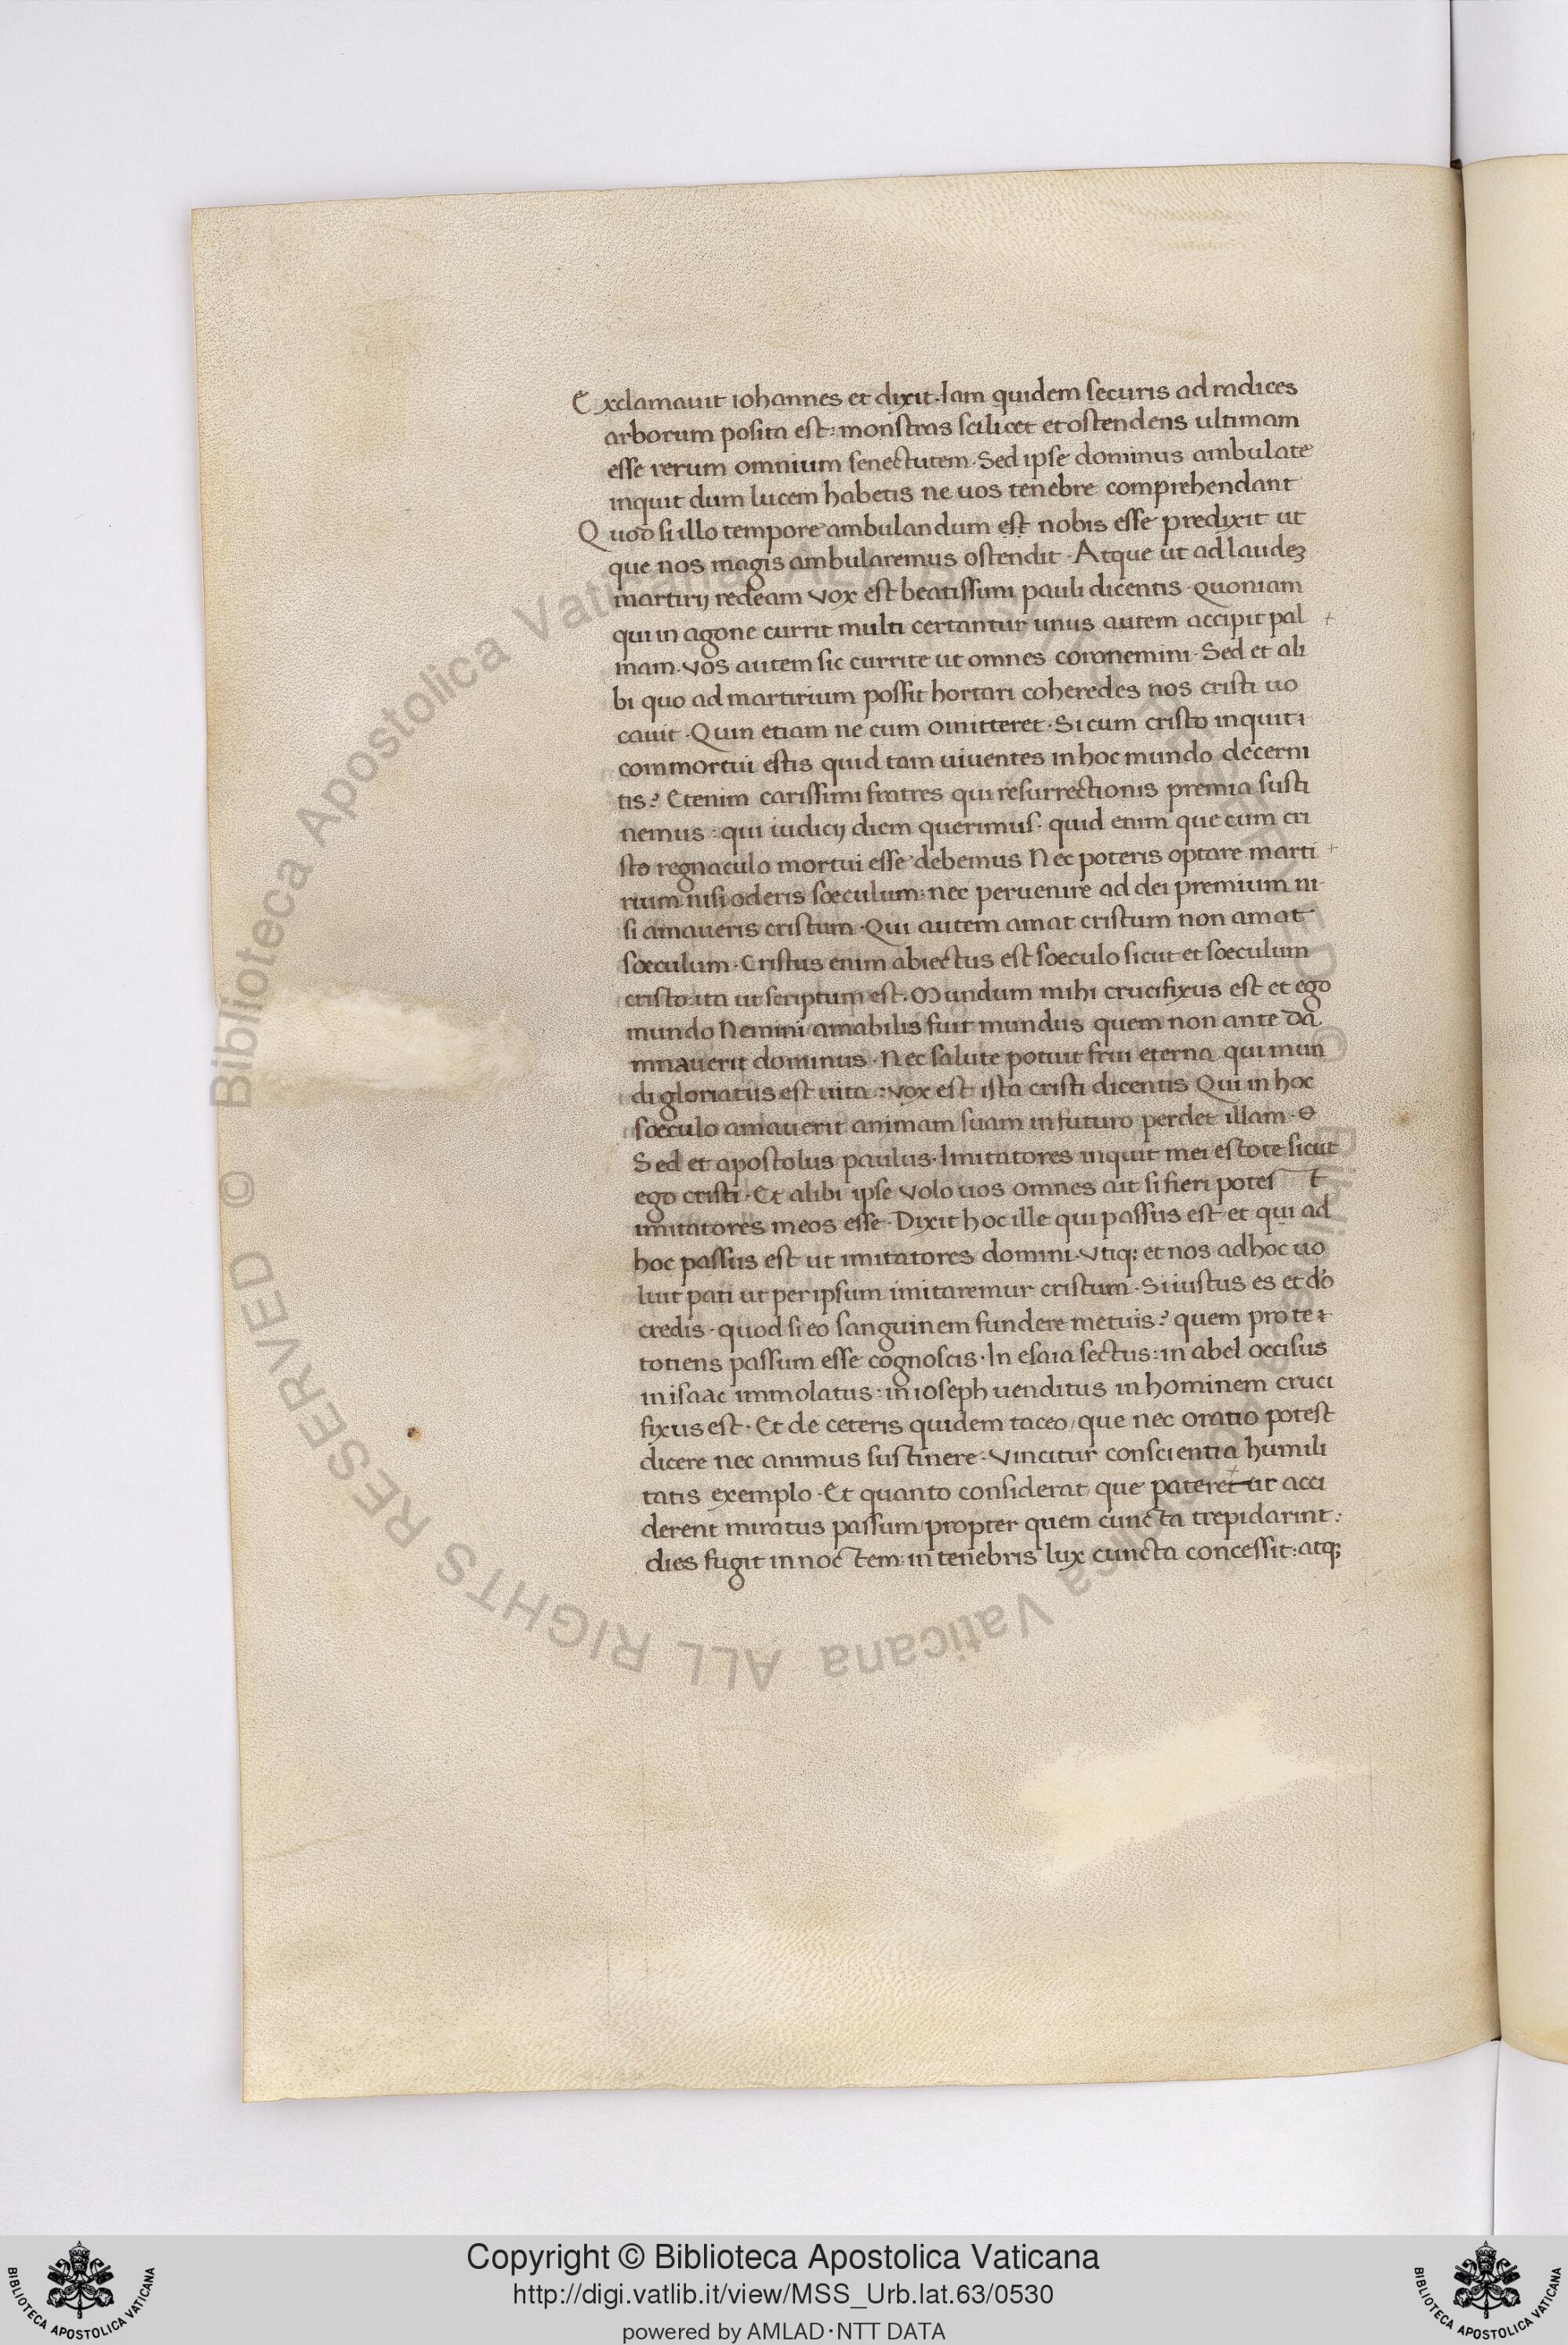 Exclamauit iohannes et dixit·Iam quidem securis ad radices
arborum posita est: monstras scilicet et ostendens ultimam
esse rerum omnium senectutem·Sed ipse dominus ambulate
inquit dum lucem habetis ne uos tenebre comprehendant
Quod si illo tempore ambulandum est nobis esse predixit ut
que nos magis ambularemus ostendit·Atque ut ad laudeʒ
martirij redeam vox est beatissimi pauli dicentis·quoniam
qui in agone currit multi certantur unus autem accipit pal +
mam·vos autem sic currite ut omnes coronemini·Sed et ali
bi quo ad martirium possit hortari coheredes nos cristi uo
cauit·Quin etiam ne cum omitteret·Si cum cristo inquit:
commortui estis quid tam uiuentes in hoc mundo decerni
tis? Etenim carissimi fratres qui resurrectionis premia susti
nemus: qui iudicij diem querimus· quid enim que cum cri
sto regnaculo mortui esse debemus Nec poteris optare marti +
rium nisi oderis soeculum: nec peruenire ad dei premium ni
si amaueris cristum·Qui autem amat cristum non amat
soeculum·Cristus enim abiectus est soeculo sicut et soeculum
cristo: ita ut scriptum est·Mundum mihi crucifixus est et ego
mundo Nemini amabilis fuit mundus quem non ante dā
mnauerit dominus·Nec salute potuit frui eterna qui mun
di gloriatus est uita: vox est ista cristi dicentis Qui in hoc
soeculo amauerit animam suam in futuro perdet illam·
Sed et apostolus paulus·Imitatores inquit mei estote sicut
ego cristi·Et alibi ipse volo uos omnes ait si fieri potes t
imitatores meos esse·Dixit hoc ille qui passus est et qui ad
hoc passus est ut imitatores domini·vtiq; et nos ad hoc uo
luit pati ut per ipsum imitaremur cristum·Si iustus es et dō
credis·quod si eo sanguinem fundere metuis? quem pro te
totiens passum esse cognoscis·In esaia sectus: in abel occisus
in isaac immolatus: in ioseph uenditus in hominem cruci
fixus est·Et de ceteris quidem taceo/que nec oratio potest
dicere nec animus sustinere·vincitur conscientia humili
tatis exemplo·Et quanto considerat que pateret ut acci
derent miratus passum propter quem cuncta trepidarint:
dies fugit in noctem: in tenebris lux cuncta concessit: atq;
Copyright © Biblioteca Apostolica Vaticana
http://digi.vatlib.it/view/MSS_Urb.lat.63/0530
powered by AMLAD·NTT DATA
BIBLIOTECA APOSTOLICA VATICANA
BIBLIOTECA APOSTOLICA VATICANA
© Biblioteca Apostolica Vaticana ALL RIGHTS RESERVED © Biblioteca Apostolica Vaticana ALL RIGHTS RESERVED